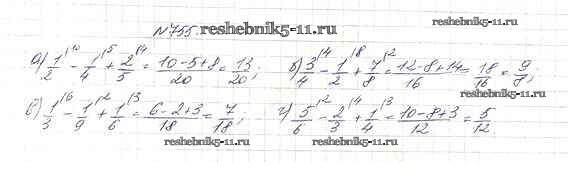 №755. reshebnik5-11.ru
reshebnik5-11.ru
а) 1/2 \10 − 1/4 \5 + 2/5 \4 = (10−5+8)/20 = 13/20; б) 3/4 \4 − 1/2 \8 + 7/8 \2 = (12−8+14)/16 = 18/16 = 9/8;
в) 1/3 \6 − 1/9 \2 + 1/6 \3 = (6−2+3)/18 = 7/18; г) 5/6 \2 − 2/3 \4 + 1/4 \3 = (10−8+3)/12 = 5/12.
reshebnik5-11.ru reshebnik5-11.ru